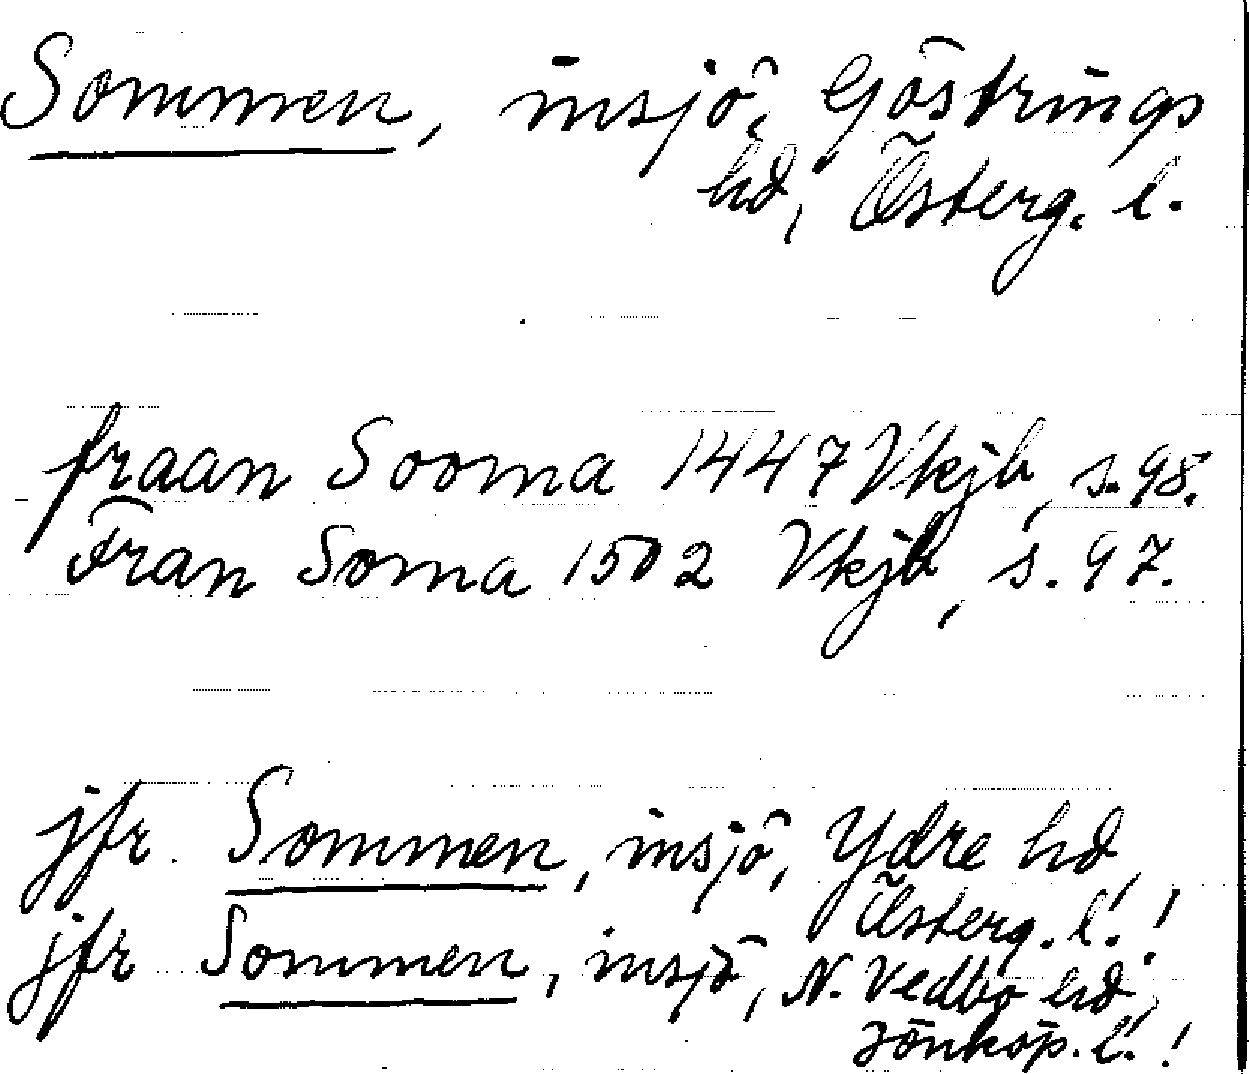 Sommen, insjö, Göstrings
hd, Österg. l.
fraan Sooma 1447 Vkjb, s. 98.
Fran Soma 1502 Vkjb, s. 97.
jfr Sommen, insjö, Ydre hd,
Österg. l.!
jfr Sommen, insjö, N. Vedbo hd,
Jönköp. l.!